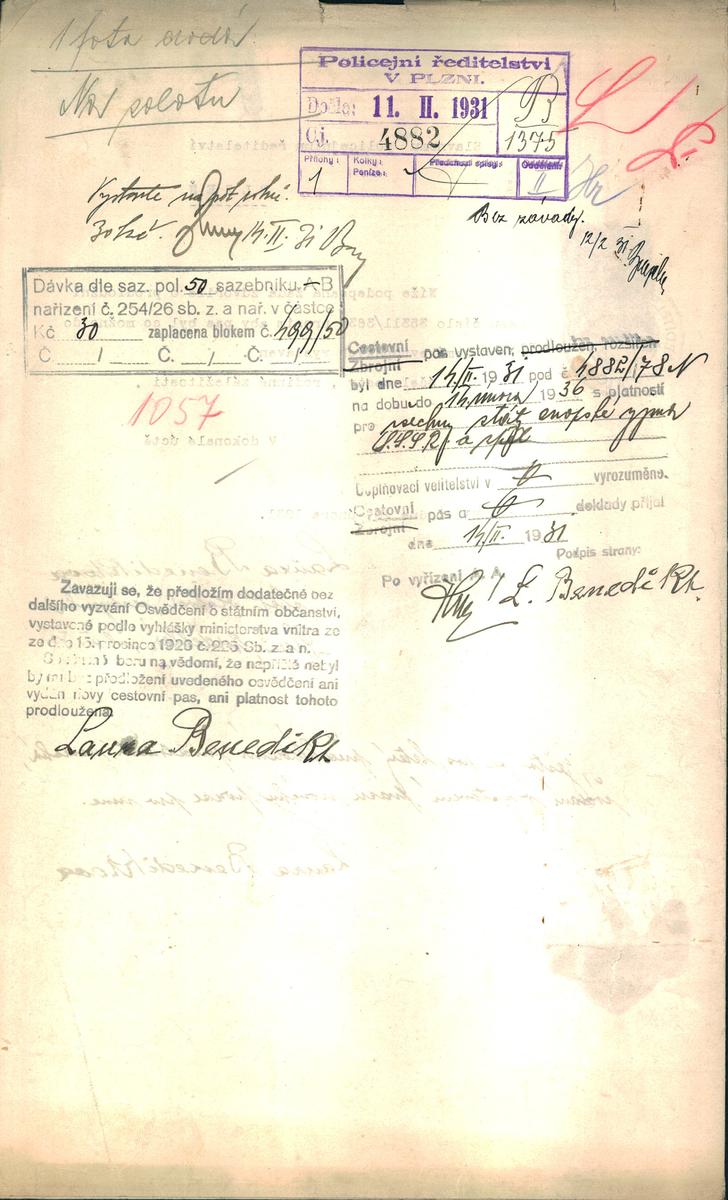 1 foto dodá
Policejní ředitelství
V PLZNI.
Došlo: 11. II. 1931
Čj. 4882
B
1375
Přílohy:
1
Kolky:
Peníze:
Předchozí spisy:
Oddělení:
II
Vystavte na pět roků.
30 Kč. 14/II. 31
Bez závady.
12/2 31
Dávka dle saz. pol. 50 sazebníku A-B
nařízení č. 254/26 sb. z. a nař. v částce
Kč 30 zaplacena blokem č. 499/50
Č / Č. / Č. /
1057
Cestovní pas vystaven, prodloužen, rozšířen
Zbrojní
byl dne 14/II. 1931 pod č 4882/78
na dobu do 14. února 1936 s platností
pro všechny státy evropské vyjma
S.S.S.R. a zpět
Doplňovací velitelství v vyrozuměno.
Cestovní pas a doklady přijal
Zbrojní
dne 14/II. 1931
Podpis strany:
Po vyřízení A. A.
L. Benedikt.
Zavazuji se, že předložím dodatečně bez
dalšího vyzvání Osvědčení o státním občanství,
vystavené podle vyhlášky ministerstva vnitra ze
ze dne 15. prosince 1926 č. 225 Sb. z. a n.
Současně beru na vědomí, že napříště nebyl
by mi bez předložení uvedeného osvědčení ani
vydán nový cestovní pas, ani platnost tohoto
prodloužena.
Laura Benedikt